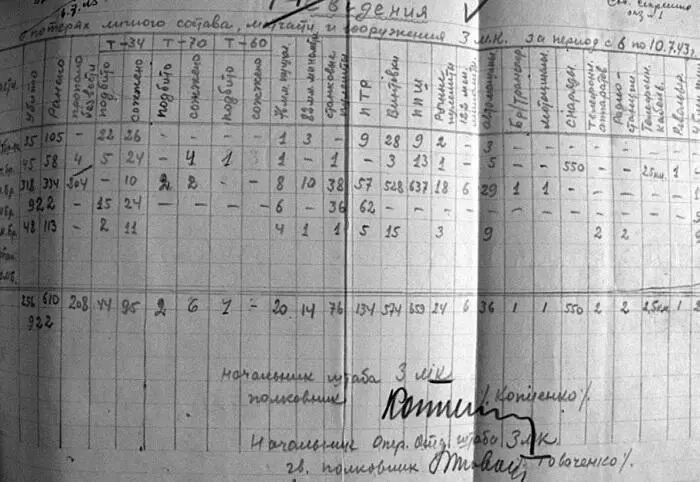 6.7.43
ведения
о потерях личного состава, матчасти и вооружения 3 м.к. за период с 6 по 10.7.43.
Т-34 Т-70 Т-60
Убито Ранено пропало без вести подбито сожжено подбито сожжено подбито сожжено 82 мм миномет. станковые пулеметы ПТР Винтовки ППШ Ручные пулеметы автомашины Бр/транспор. мотоциклы снаряды Телефон. аппаратов Радио-станции Телефон. кабель
35 105 - 22 26 - - - - 1 3 - 9 28 9 2 - 3 -
45 58 4 5 24 - 4 1 1 - 1 - 3 13 1 - 5 - - 550 - - 25км. 1
318 334 204 - 10 2 2 8 10 38 57 528 637 18 6 29 1 1
922 - 15 24 - - - - 6 - 36 62
48 113 - 2 11 4 1 1 5 15 3 9 2 2
256 610 208 44 95 2 6 1 - 20 14 76 134 574 659 24 6 36 1 1 550 2 2 2,5км 1
922
начальник штаба 3 МК
полковник /Копиенко/.
Начальник Опер. Отд. штаба 3 МК
гв. полковник